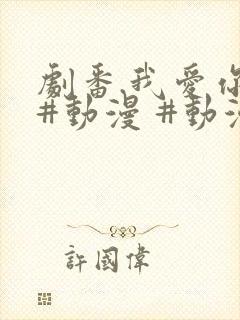 劇番我愛你
#動漫 #動漫
許國偉